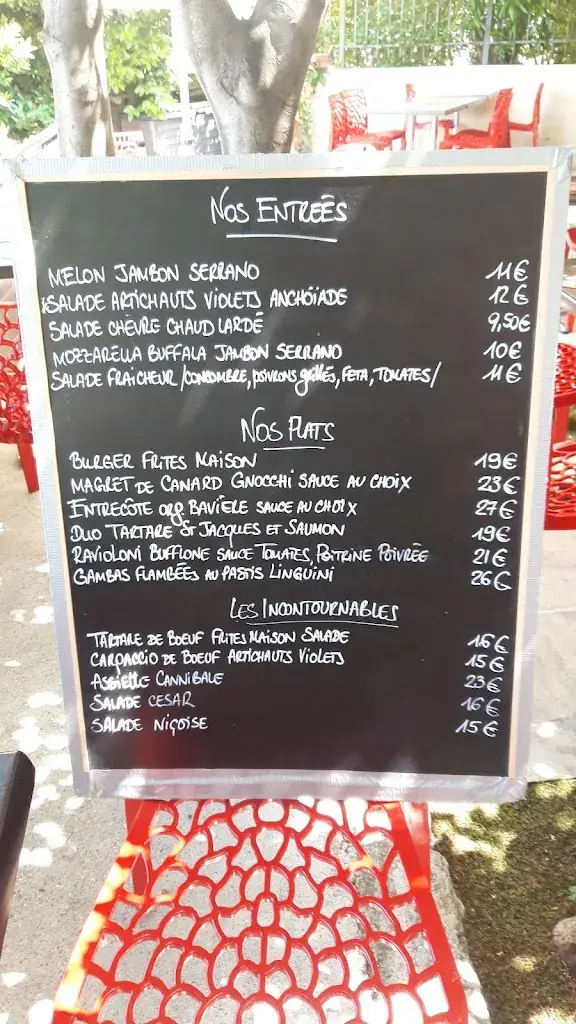 NOS ENTREÉS
MELON JAMBON SERRANO 11€
SALADE ARTICHAUTS VIOLETS ANCHOÏADE 12€
SALADE CHÈVRE CHAUD LARDÉ 9,50€
MOZZARELLA BUFFALA JAMBON SERRANO 10€
SALADE FRAICHEUR /CONCOMBRE, POIVRONS grillés, FETA, TOMATES/ 11€
NOS PLATS
BURGER FRITES MAISON 19€
MAGRET DE CANARD GNOCCHI SAUCE AU CHOIX 23€
ENTRECÔTE org BAVIERE SAUCE AU CHOIX 27€
DUO TARTARE ST JACQUES ET SAUMON 19€
RAVIOLONI BUFFLONE SAUCE TOMATES, POITRINE POIVRÉE 21€
GAMBAS FLAMBÉES AU PASTIS LINGUINI 26€
LES INCONTOURNABLES
TARTARE DE BOEUF FRITES MAISON SALADE 16€
CARPACCIO DE BOEUF ARTICHAUTS VIOLETS 15€
ASSIETTE CANNIBALE 23€
SALADE CESAR 16€
SALADE NIÇOISE 15€